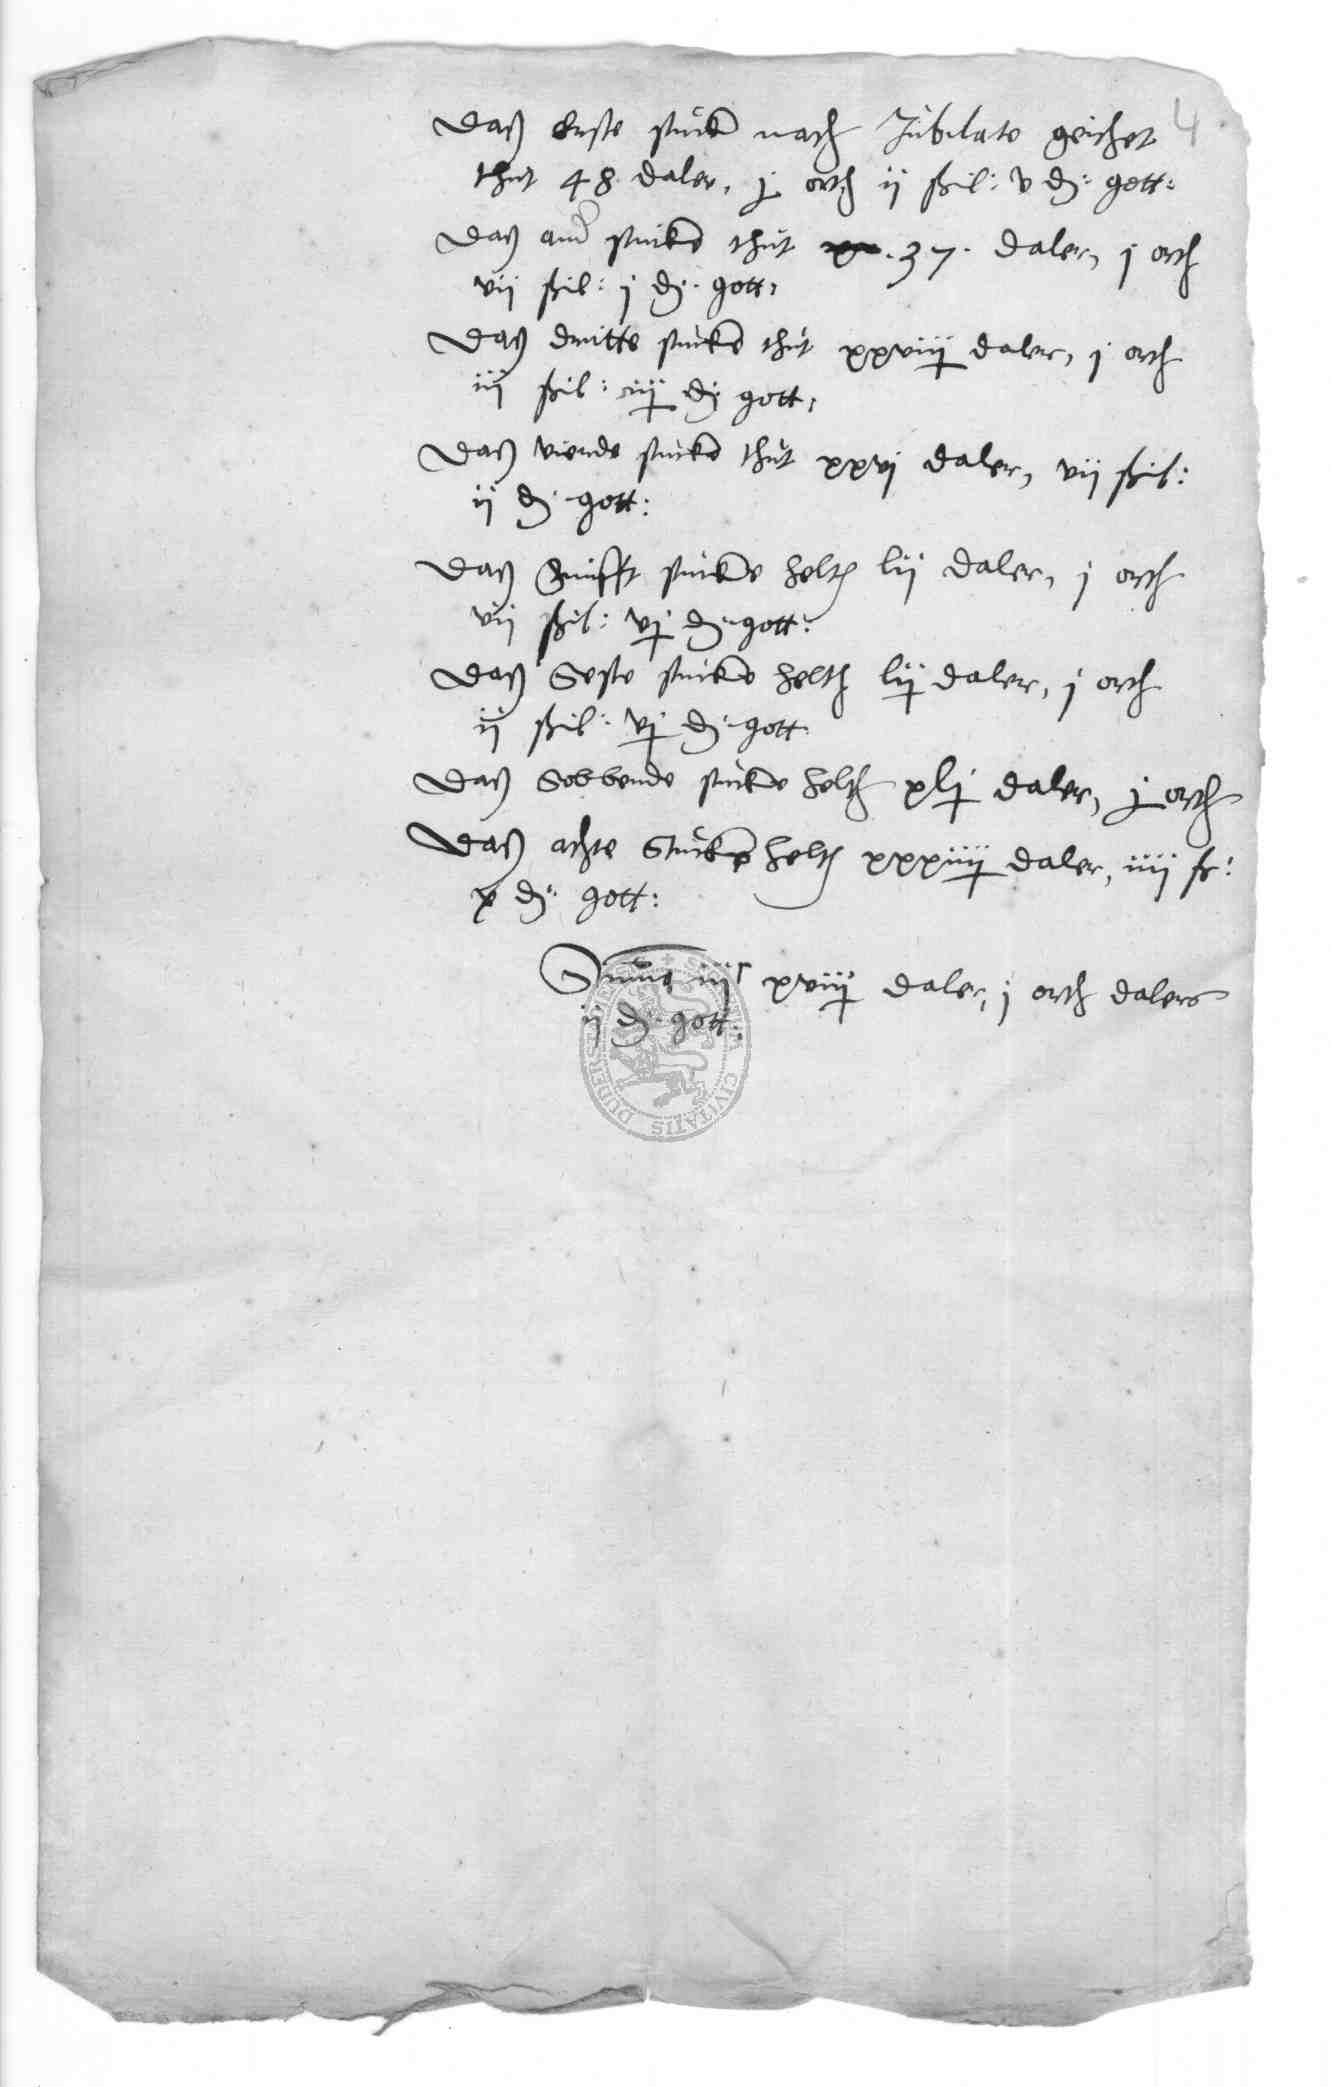 4
Daß erste stuck nach Jubilate geichet
thut 48 daler, j orth ij ßhil: v d: gott:
Daß ander stucke thut 37. daler, j orth
vij ßhil: j d: gott:
Daß dritte stucke thut xxviij daler, j orth
iij ßhil: iiij d: gott:
Daß vierde stucke thut xxvj daler, vij ßhil:
ij d: gott:
Daß funfft stucke helth lij daler, j orth
vij ßhil: vj d: gott:
Daß Seste stucke helth lij daler, j orth
ij ßhil: vj d: gott
Daß Sebbende stucke helth xlj daler, j orth
Daß achte Stucke helth xxxiiij daler, iiij ß:
x d: gott:
Summa iijc xviij daler, j orth dalers
ij d: gott:
CIVITATIS